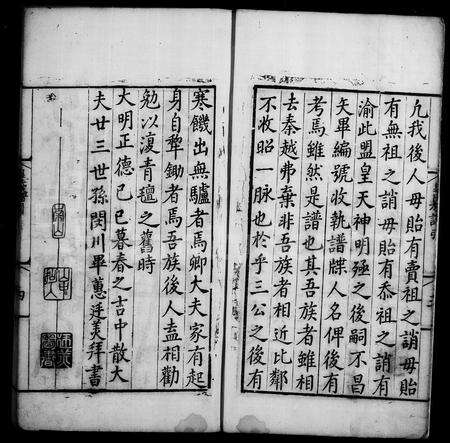 凢我後人毋貽有賣祖之誚毋貽
有無祖之誚毋貽有忝祖之誚有
渝此盟皇天神明殛之後嗣不昌
矢畢編號收執譜牒人名俾後有
考焉雖然是譜也其吾族者雖相
去秦越弗棄非吾族者相近比鄰
不收昭一脉也於乎三公之後有
寒餓出無驢者焉卿大夫家有起
身自犂鋤者焉吾族後人盍相勸
勉以復青氊之舊時
大明正德己巳暮春之吉中散大
夫廿三世孫閔川畢蕙廷美拜書